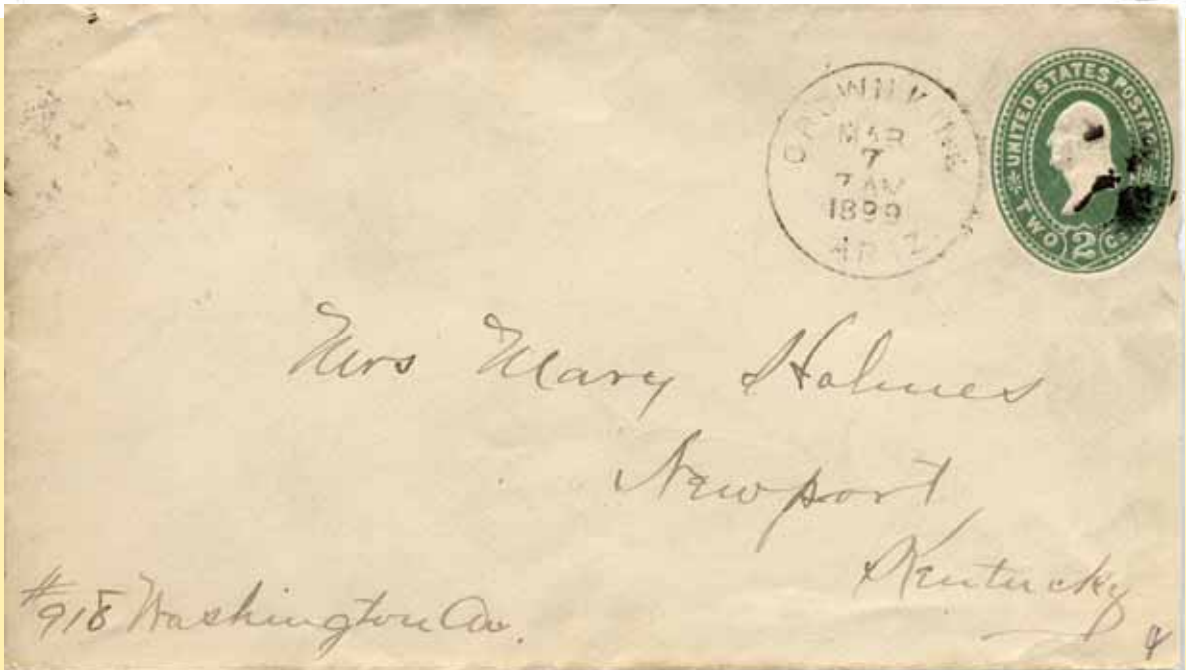 MAR
7
7 AM
1899
ARIZ
UNITED STATES POSTAGE
TWO 2
Mrs Mary Holmes
Newport
Kentucky
#918 Washington Av.